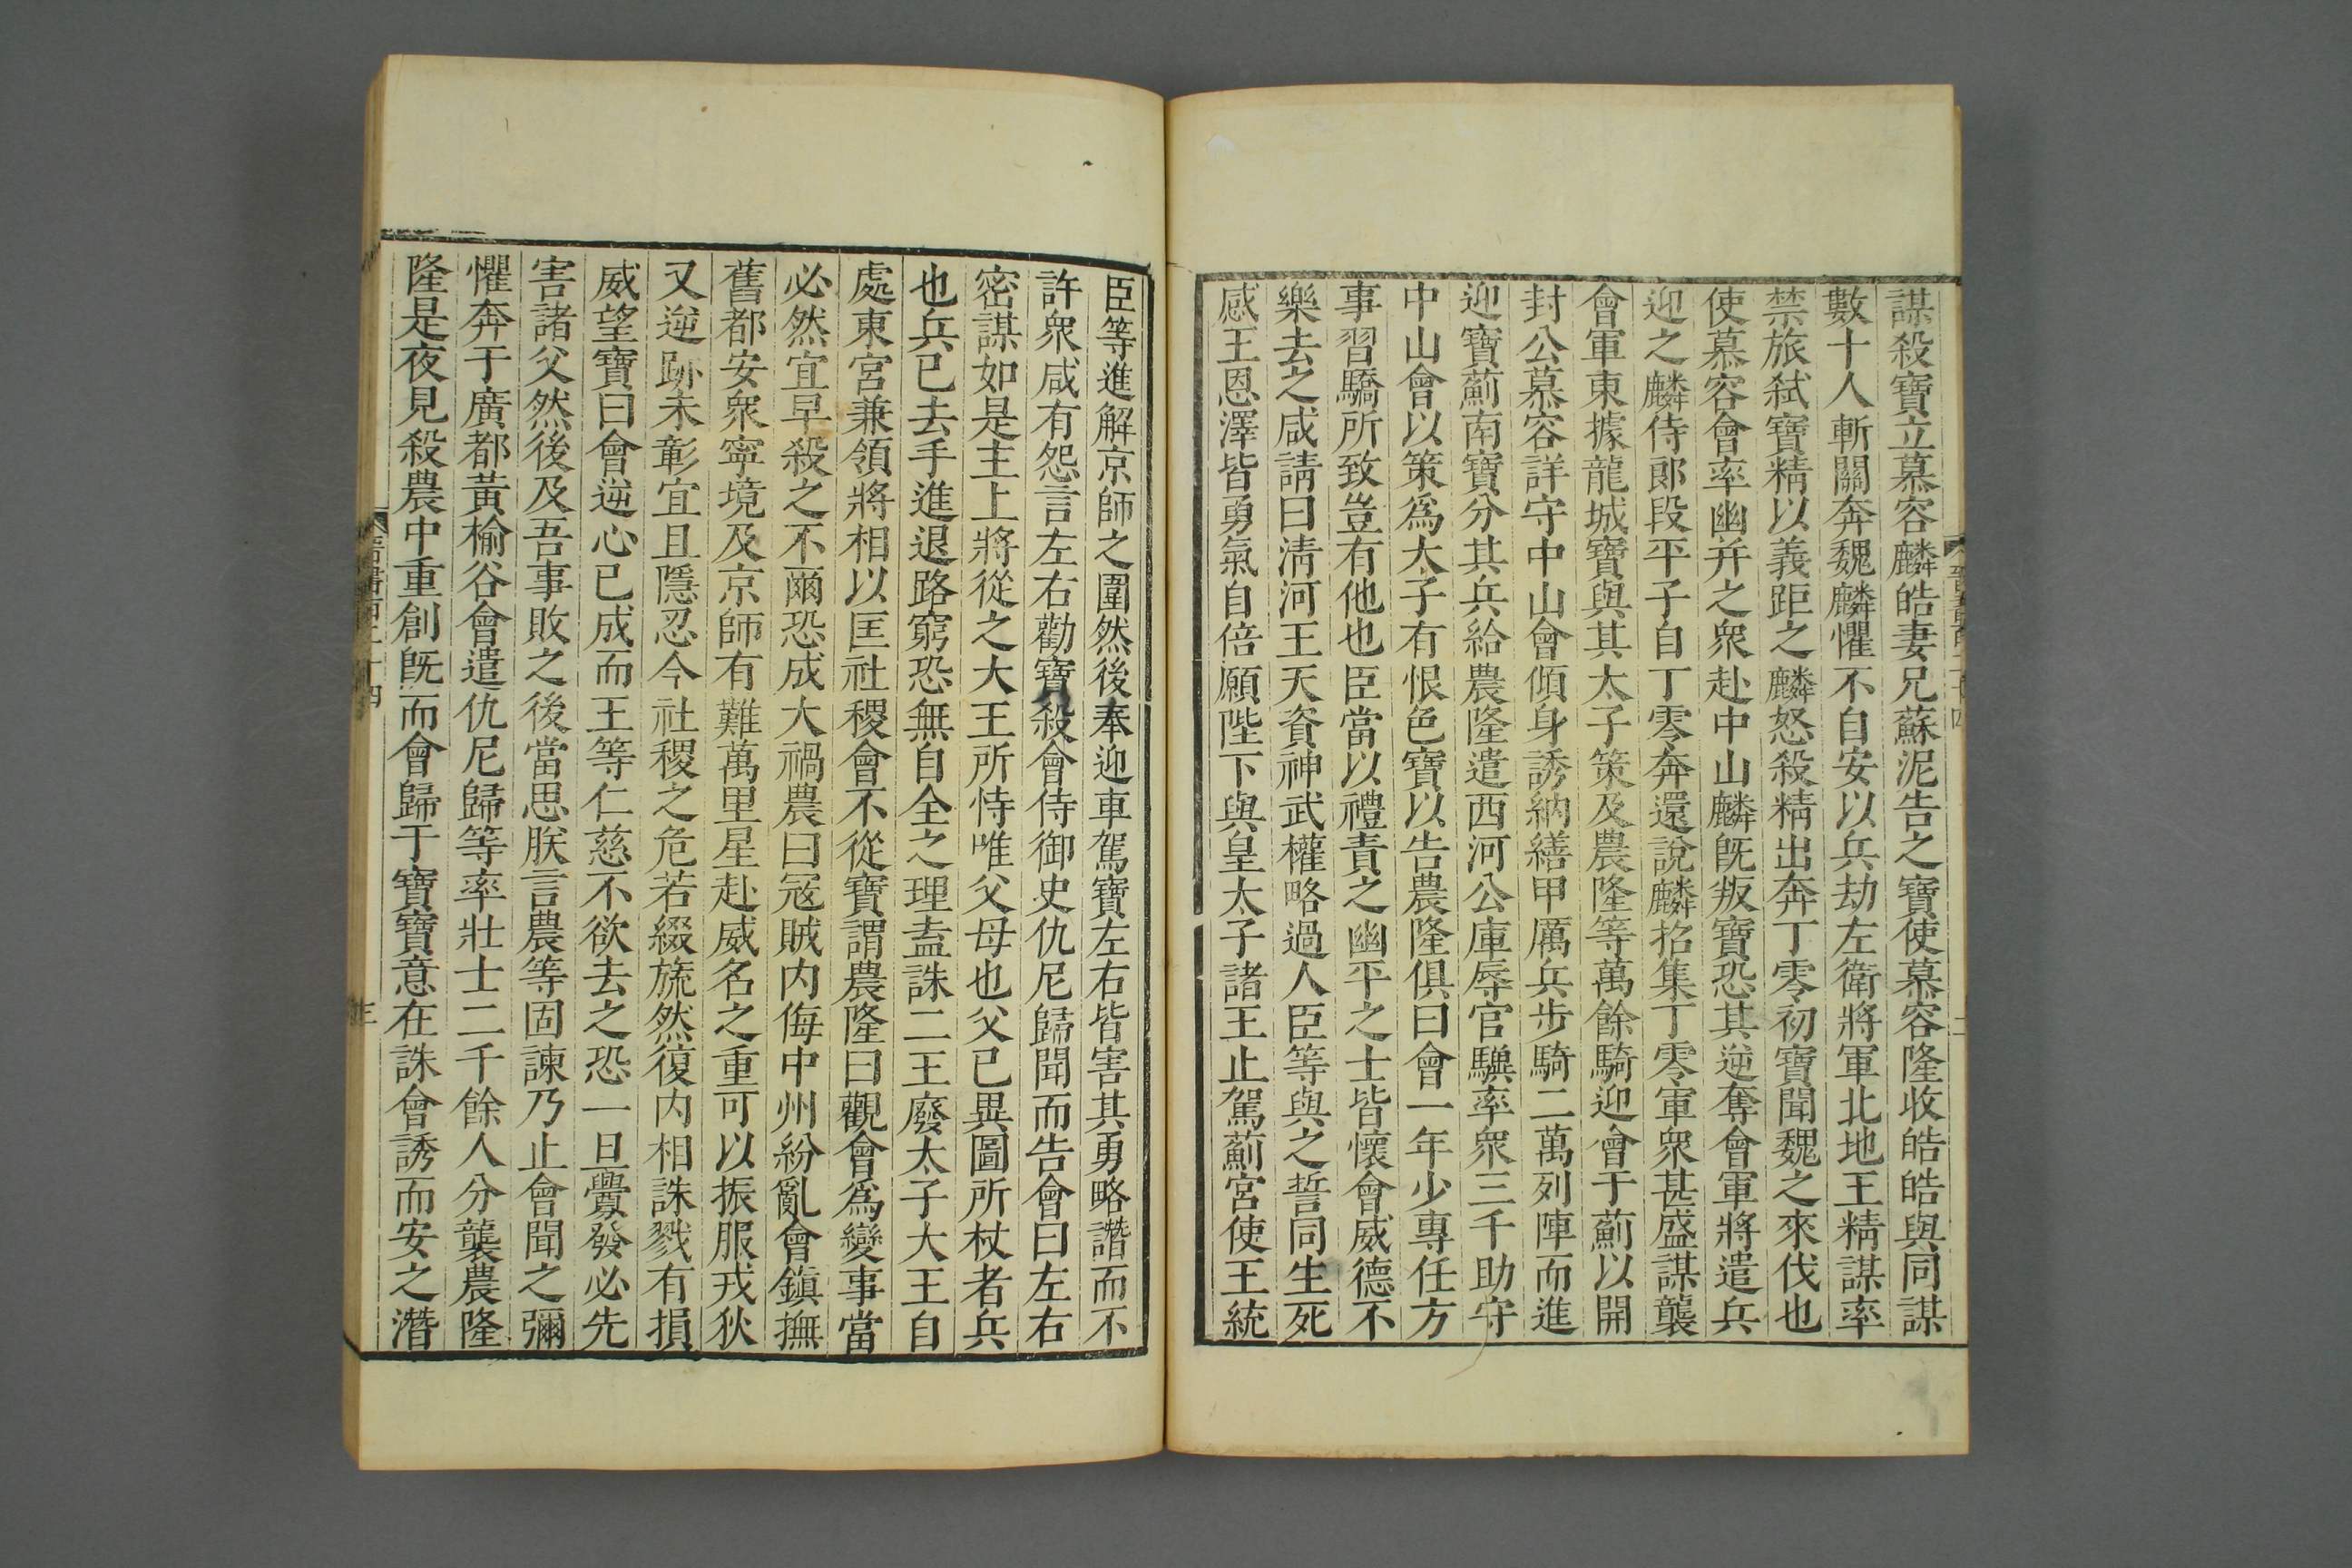 謀殺寶立慕容麟皓妻兄蘇泥告之寶使慕容隆收皓皓與同謀
數十人斬關奔魏麟懼不自安以兵劫左衛將軍北地王精謀率
禁旅弑寶精以義距之麟怒殺精出奔丁零初寶聞魏之來伐也
使慕容會率幽幷之衆赴中山麟旣叛寶恐其逆奪會軍將遣兵
迎之麟侍郎段平子自丁零奔還說麟招集丁零軍衆甚盛謀襲
會軍東據龍城寶與其太子策及農隆等萬餘騎迎會于薊以開
封公慕容詳守中山會傾身誘納繕甲厲兵步騎二萬列陣而進
迎寶薊南寶分其兵給農隆遣西河公庫辱官驥率衆三千助守
中山會以策爲太子有恨色寶以告農隆俱曰會一年少專任方
事習驕所致豈有他也臣當以禮責之幽平之士皆懷會威德不
樂去之咸請曰淸河王天資神武權略過人臣等與之誓同生死
感王恩澤皆勇氣自倍願陛下與皇太子諸王止駕薊宮使王統
臣等進解京師之圍然後奉迎車駕寶左右皆害其勇略譖而不
許衆咸有怨言左右勸寶殺會侍御史仇尼歸聞而告會曰左右
密謀如是主上將從之大王所恃唯父母也父已異圖所杖者兵
也兵已去手進退路窮恐無自全之理盍誅二王廢太子大王自
處東宮兼領將相以匡社稷會不從寶謂農隆曰觀會爲變事當
必然宜早殺之不爾恐成大禍農曰寇賊内侮中州紛亂會鎭撫
舊都安衆寧境及京師有難萬里星赴威名之重可以振服戎狄
又逆跡未彰宜且隱忍今社稷之危若綴旒然復内相誅戮有損
威望寶曰會逆心已成而王等仁慈不欲去之恐一旦釁發必先
害諸父然後及吾事敗之後當思朕言農等固諫乃止會聞之彌
懼奔于廣都黃榆谷會遣仇尼歸等率壯士二千餘人分襲農隆
隆是夜見殺農中重創旣而會歸于寶寶意在誅會誘而安之潛